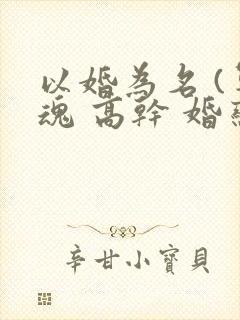 以婚為名(
魂 高幹 婚
辛甘小寶貝